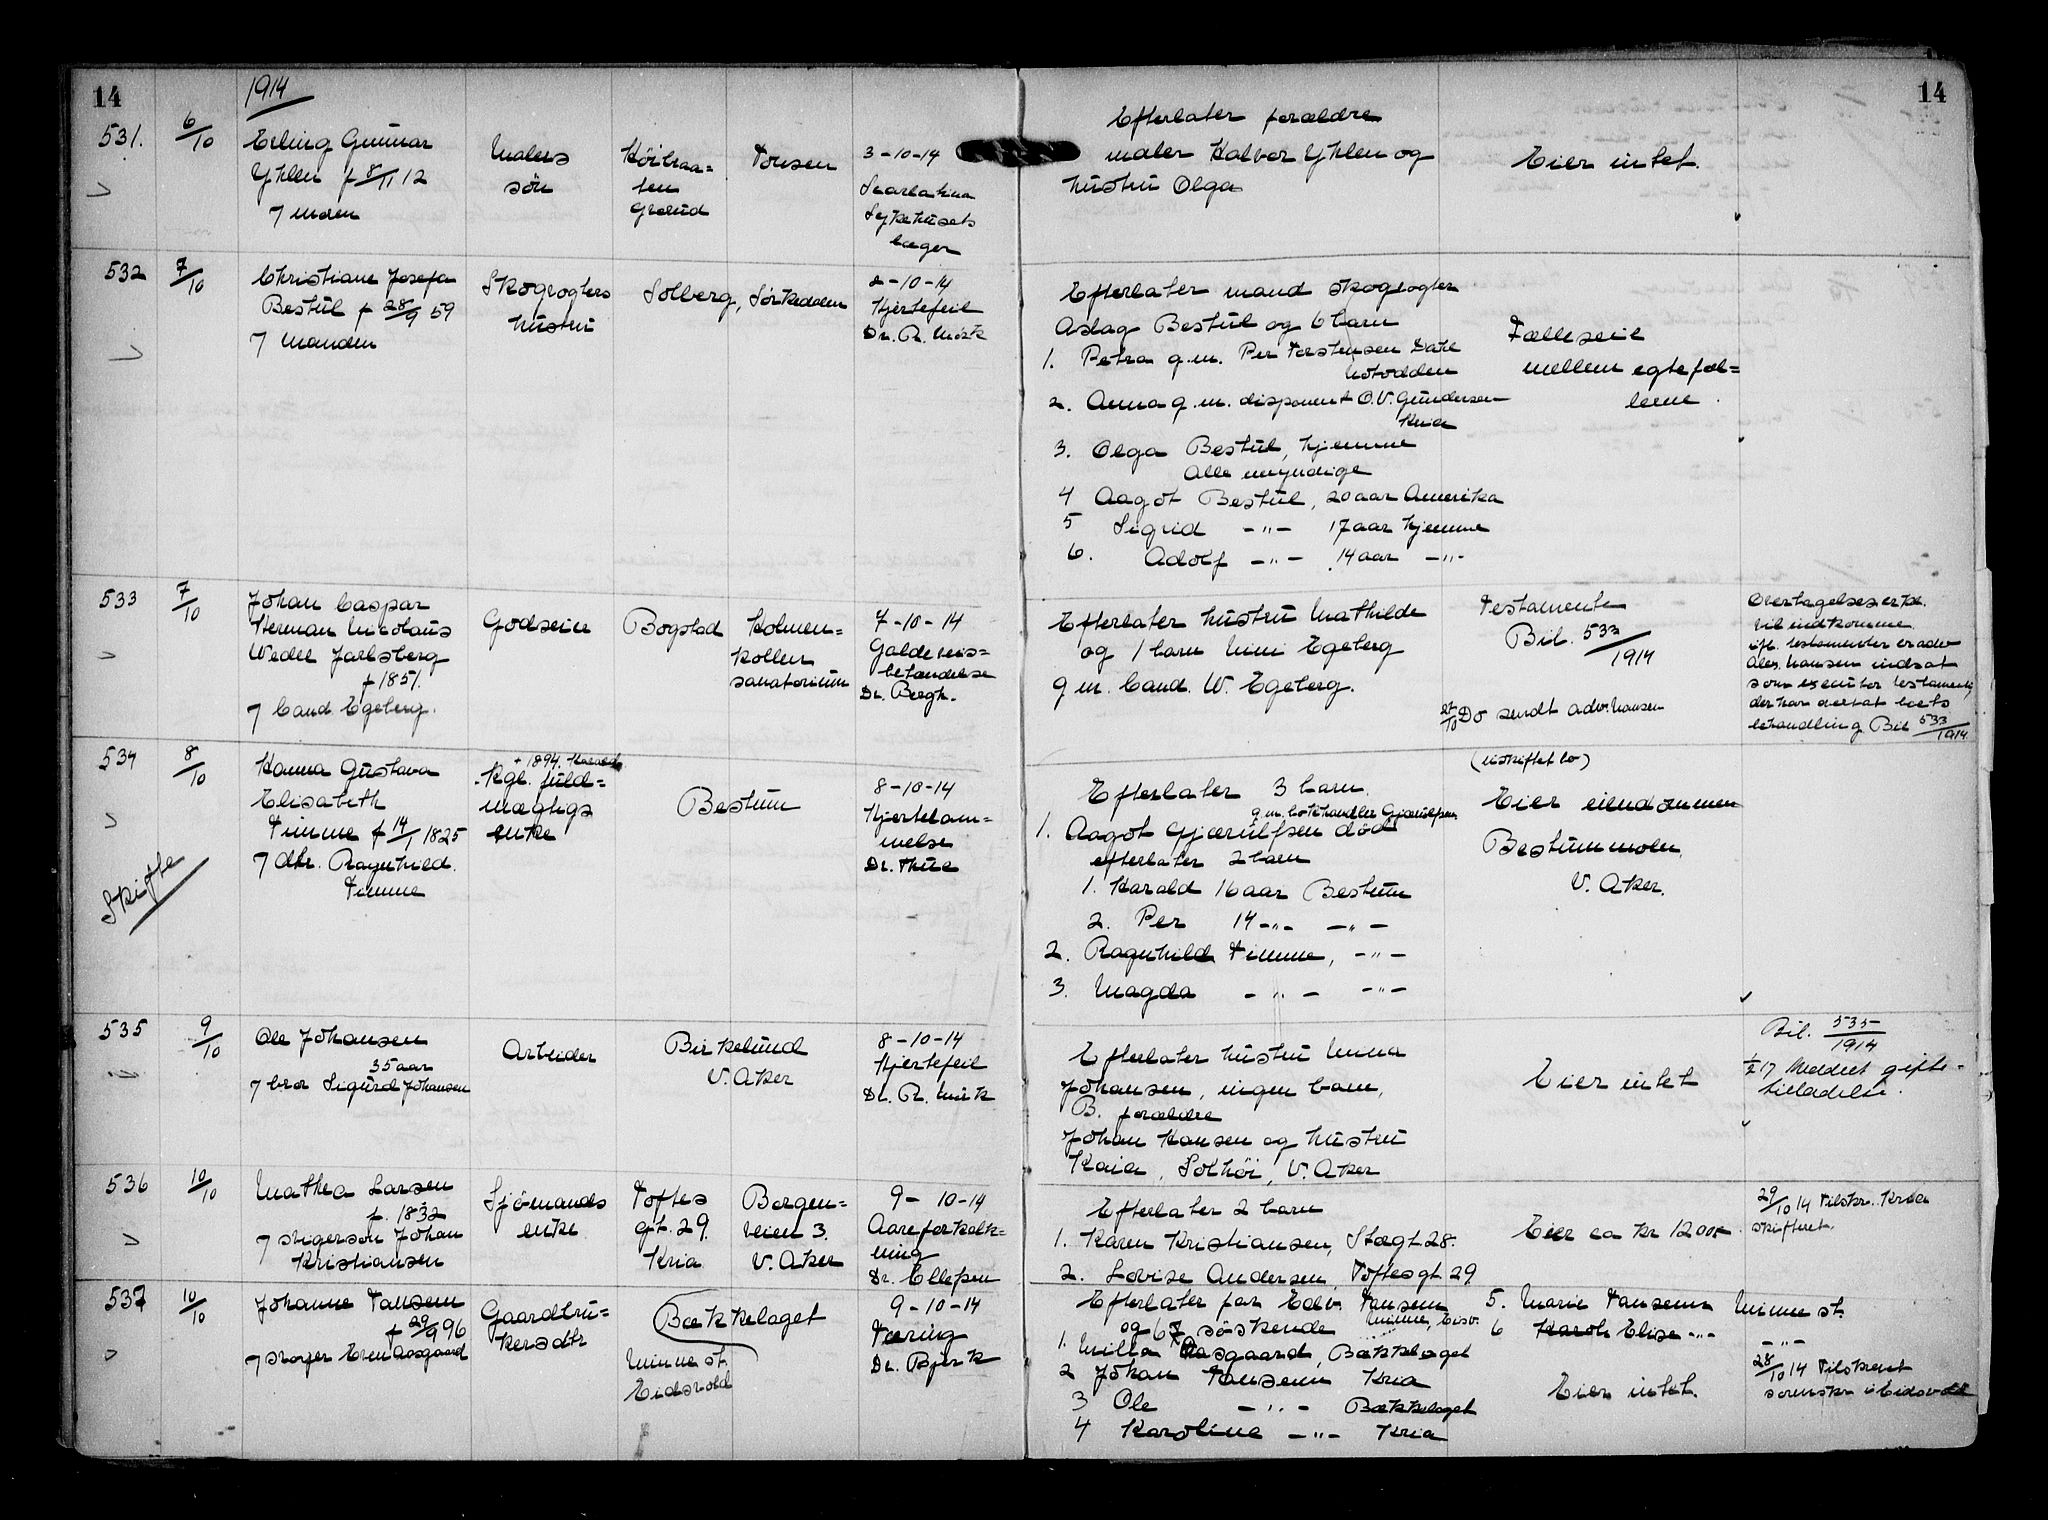 14
1914
14
531. 6/10
Erling Gunnar
Yhlen f 8/11 12
7 moren
Malers
søn
Høibraa-
ten
Grorud
Tonsen
3-10-14
Scarlatina
Sykehusets
læger
Efterlater forældre
maler Halvor Yhlen og
hustru Olga
Eier intet.
532 7/10
Christiane Josefa
Bestul f 28/9 59
7 manden
Skogvogters
hustru
Solberg, Sørkedalen
2-10-14
Hjertefeil
Dr. R. Mørk
Efterlater mand skogvogter
Aslag Bestul og 6 barn
1. Petra g.m. Per Torstensen Dahl
Notodden
2. Anna g.m. disponent O.V. Gundersen
Kria
3. Olga Bestul, hjemme
Alle myndige
4 Aagot Bestul, 20 aar Amerika
5 Sigrid -"- 17 aar hjemme
6. Adolf -"- 14 aar -"-
Fælleseie
mellem egtefæl=
lerne.
533 7/10
Johan Caspar
Herman Nicolaus
Wedel Jarlsberg
f 1851.
7 Cand. Egeberg.
Godseier
Bogstad
Holmen=
kollen
sanatorium
7-10-14
Galdeveis=
betændelse
Dr. Bergh.
Efterlater hustru Mathilde
og 1 barn Mimi Egeberg
g m. Cand. W. Egeberg.
Testamente
Bil. 533/1914
27/10 Do sendt adv. Hansen
Overtagelseserkl.
vil indkomme.
ifl. testamenter er adv
Alex. Hansen indsat
som executor testamenti,
der har boets
behandling Bil 533/1914
534 8/10
Skifte
Hanna Gustava
Elisabeth
Timme f 14/1 1825
7 dtr. Ragnhild
Timme
+ 1894. Harald
Kgl. fuld=
mægtigs
enke
Bestum
8-10-14
Hjertelam=
melse
Dr. Thue
Efterlater 3 barn.
g.m. bokhandler Gjerulfsen
1. Aagot Gjerulfsen død
efterlater 2 barn
1. Harald 16 aar Bestum
2. Per 14 -"- -"-
2. Ragnhild Timme, -"-
3. Magda -"- -"-
(uskiftet bo)
Eier eiendommen
Bestummolen,
V. Aker.
535 9/10
Ole Johansen
35 aar
7 bror Sigurd Johansen
Arbeider
Birkelund
V. Aker
8-10-14
Hjertefeil
Dr. R. Mørk
Efterlater hustru Mina
Johansen, ingen barn,
B. forældre
Johan Hansen og hustru
Kaia, Solhøi, V. Aker
Eier intet
Bil. 535/1914
1/2 17 Meddelt gifte-
tilladelse.
536 10/10
Mathea Larsen
f. 1832
7 svigersøn Johan
Kristiansen
Sjømands
enke
Toftes
gt. 29.
Kria
Bergen=
veien 3.
V. Aker
9-10-14
Aareforkalk=
ning
Dr. Ellefsen
Efterlater 2 barn
1. Karen Kristiansen, Stægt 28.
2. Lovise Andersen, Toftesgt 29.
Eier ca kr 1200.
29/10 14 Tilskr. Kria
skifteret.
537 10/10
Johanne Tansem
f 29/9 96
7 svoger Even Aasgaard
Gaardbru=
kersdtr
Bækkelaget
Minne st.
Eidsvold
9-10-14
Tæring
Dr. Bjerk
Efterlater far Edv. Tansem
Minne, Eisv.
og 6 søskende
1. Milla Aasgaard, Bækkelaget
2 Johan Tansem Kria
3 Ole -"- Bækkelaget
4 Karoline -"- Kria
5. Marie Tansem Minne st.
6 Karoli Elise -"- -"-
Eier intet.
28/10 14 Tilskrevet
sorenskr. i Eidsvold